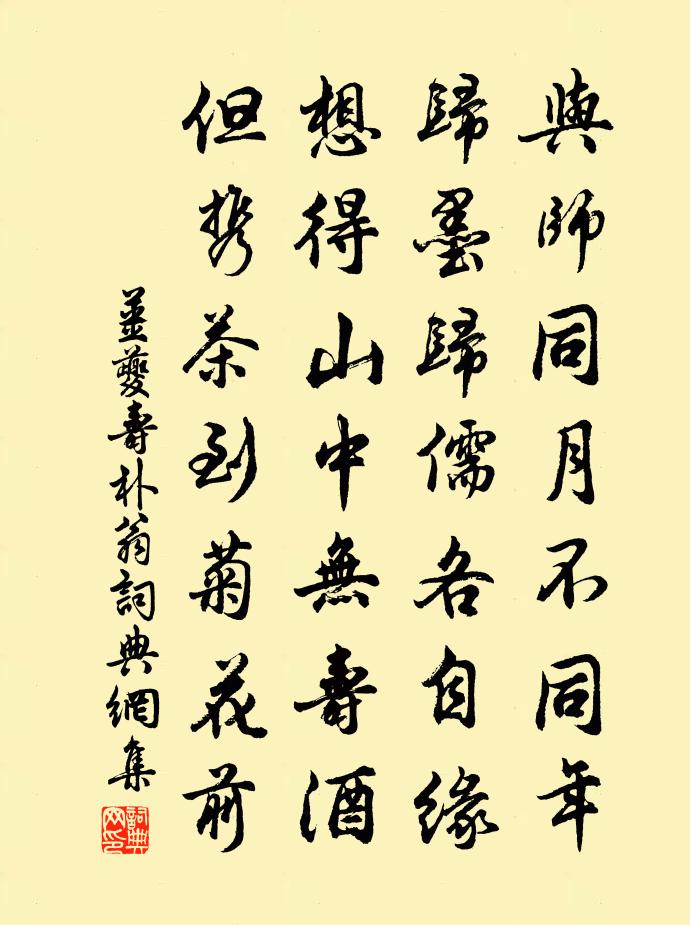 與師同月不同年
歸墨歸儒各自緣
想得山中無壽酒
但携茶到菊花前
姜夔壽朴翁詞典網集
詞典网印